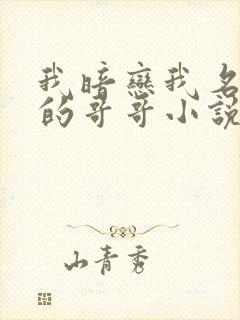 我暗戀我名
的哥哥小說
山青秀